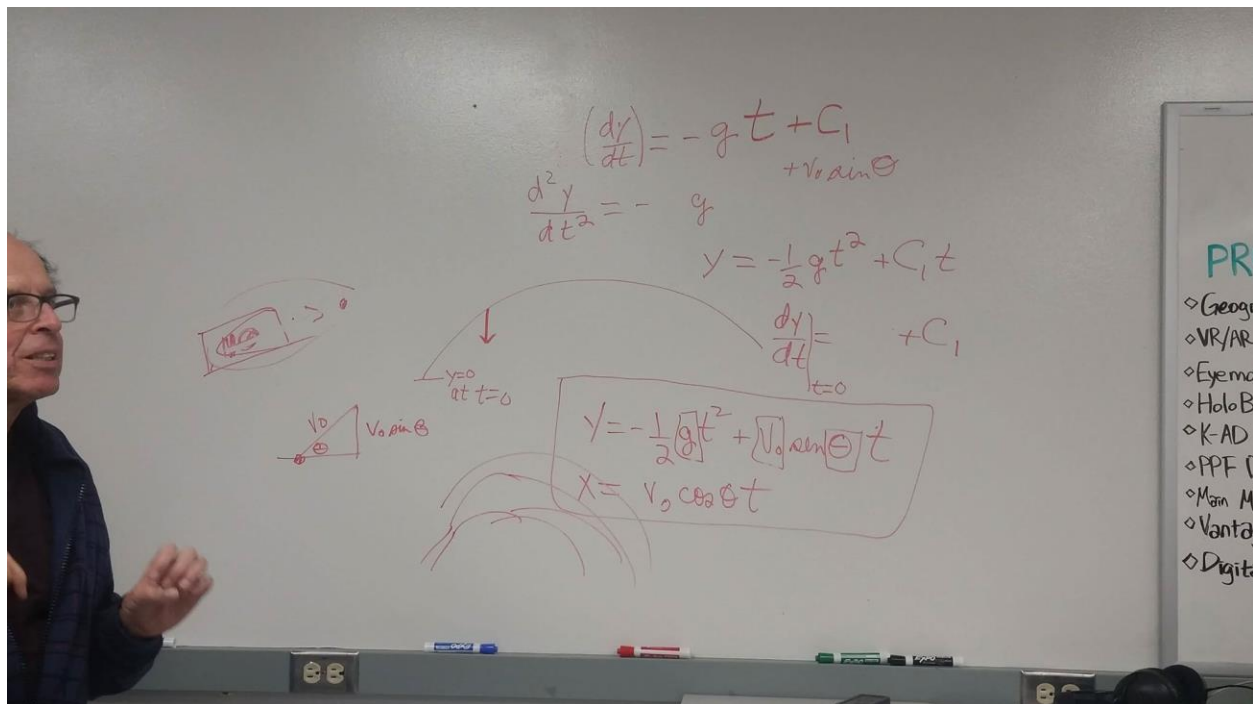 (dy/dt) = - g t + C₁
+ v₀ sin θ
d²y/dt² = - g
y = -1/2 gt² + C₁t
dy/dt|t=0 = + C₁
y=0
at t=0
V₀
θ
V₀ sin θ
y = -1/2 g t² + V₀ sen θ t
x = v₀ cos θ t
PR
◇Geogr
◇VR/AR
◇Eyemo
◇HoloB
◇K-AD
◇PPF
◇Main M
◇Vanta
◇Digita
EXPO